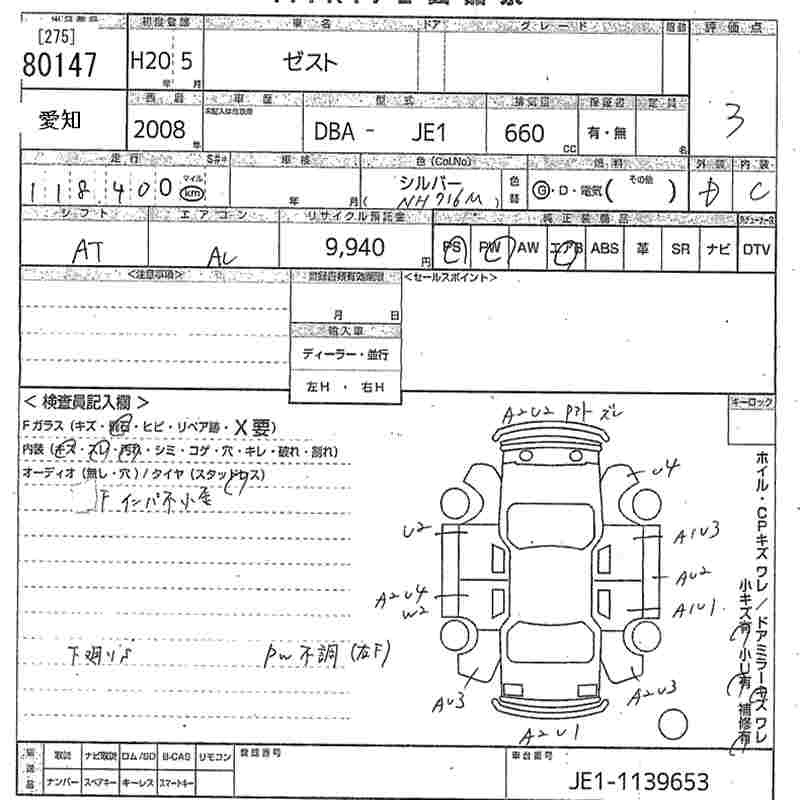 初度登録 車名 ドア グレード 評価点
[275]
80147 H20 5 ゼスト
年 月
愛知 車歴 型式 排気量 保証書 定員 3
2008 年 DBA - JE1 660 cc 有・無 名
走行 車検 色(Col.No) 燃料 外装 内装
118,400 マイル km 年 月 シルバー 色替 G・D・電気( その他 ) D C
( NH716M )
シフト エアコン リサイクル預託金 純正装備品
AT AC 9,940 円 PS PW AW エアB ABS 革 SR ナビ DTV
<注意事項> <セールスポイント>
月 日
輸入車
ディーラー・並行
左H ・ 右H
<検査員記入欄> キーロック
Fガラス(キズ・飛石・ヒビ・リペア跡・X要)
内装(キズ・ズレ・汚れ・シミ・コゲ・穴・キレ・破れ・割れ)
オーディオ(無し・穴)/タイヤ(スタッドレス)
A2U2
U4
U2 A1U3
AU2
A2U4
W2 A1U1
PW不調(左F)
AU3 A2U3
A2U1
ホイル・CPキズワレ/ドアミラーキズワレ
小キズ有 小U有 補修有
取説 ナビ取説 ロム/SD B-CAS リモコン 登録番号 車台番号
ナンバー スペアキー キーレス スマートキー JE1-1139653